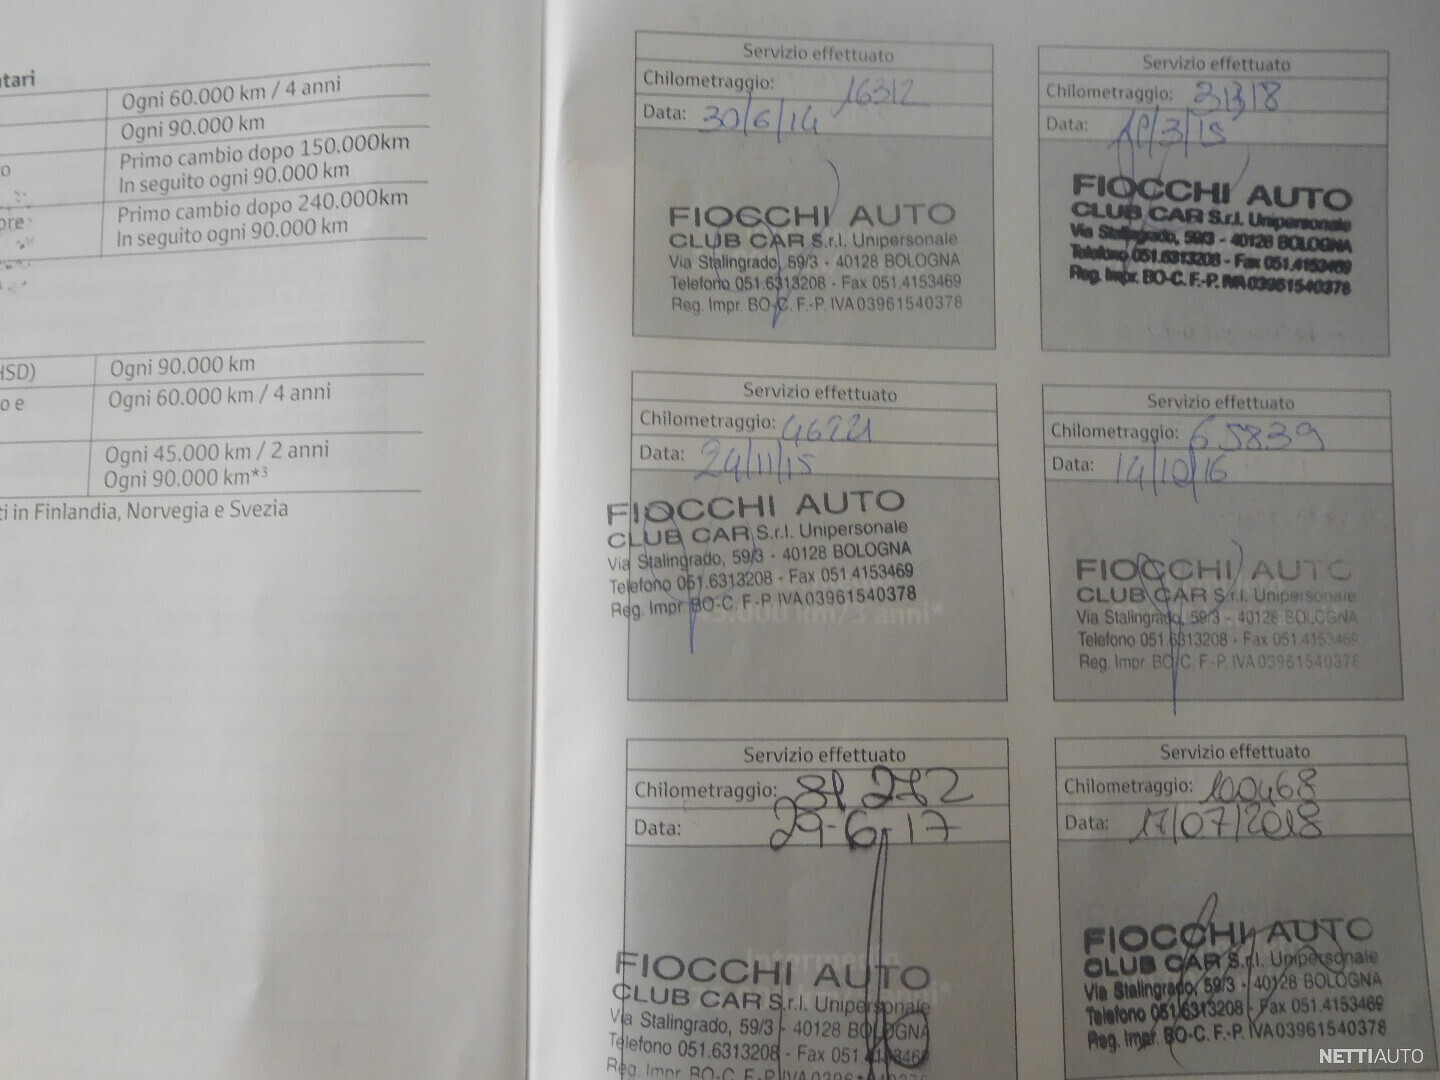 tari
Ogni 60.000 km / 4 anni
Ogni 90.000 km
o
Primo cambio dopo 150.000km
In seguito ogni 90.000 km
ore
Primo cambio dopo 240.000km
In seguito ogni 90.000 km
HSD)
Ogni 90.000 km
o e
Ogni 60.000 km / 4 anni
Ogni 45.000 km / 2 anni
Ogni 90.000 km*3
ti in Finlandia, Norvegia e Svezia
Servizio effettuato
Chilometraggio: 16312
Data: 30/6/14
FIOCCHI AUTO
CLUB CAR S.r.l. Unipersonale
Via Stalingrado, 59/3 - 40128 BOLOGNA
Telefono 051.6313208 - Fax 051.4153469
Reg. Impr. BO-C. F.-P. IVA 03961540378
Servizio effettuato
Chilometraggio: 31318
Data: 10/3/15
FIOCCHI AUTO
CLUB CAR S.r.l. Unipersonale
Via Stalingrado, 59/3 - 40128 BOLOGNA
Telefono 051.6313208 - Fax 051.4153469
Reg. Impr. BO-C. F.-P. IVA 03961540378
Servizio effettuato
Chilometraggio: 46221
Data: 24/11/15
FIOCCHI AUTO
CLUB CAR S.r.l. Unipersonale
Via Stalingrado, 59/3 - 40128 BOLOGNA
Telefono 051.6313208 - Fax 051.4153469
Reg. Impr. BO-C. F.-P. IVA 03961540378
Servizio effettuato
Chilometraggio: 65839
Data: 14/10/16
FIOCCHI AUTO
CLUB CAR S.r.l. Unipersonale
Via Stalingrado, 59/3 - 40128 BOLOGNA
Telefono 051.6313208 - Fax 051.4153469
Reg. Impr. BO-C. F.-P. IVA 03961540378
Servizio effettuato
Chilometraggio: 81 272
Data: 29-6-17
FIOCCHI AUTO
CLUB CAR S.r.l. Unipersonale
Via Stalingrado, 59/3 - 40128 BOLOGNA
Telefono 051.6313208 - Fax 051.4153469
Reg. Impr. BO-C. F.-P. IVA 03961540378
Servizio effettuato
Chilometraggio: 100468
Data: 17/07/2018
FIOCCHI AUTO
CLUB CAR S.r.l. Unipersonale
Via Stalingrado, 59/3 - 40128 BOLOGNA
Telefono 051.6313208 - Fax 051.4153469
Reg. Impr. BO-C. F.-P. IVA 03961540378
NETTIAUTO